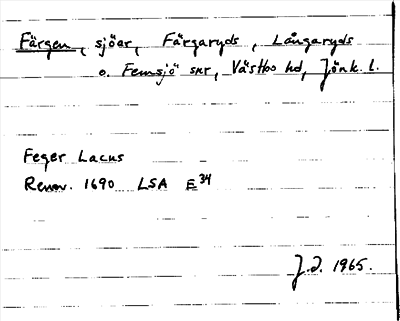 Färgen, sjöar, Färgaryds, Långaryds
o. Femsjö snr, Västbo hd, Jönk. l.
Feger Lacus
Renov. 1690 LSA E34
J.D. 1965.